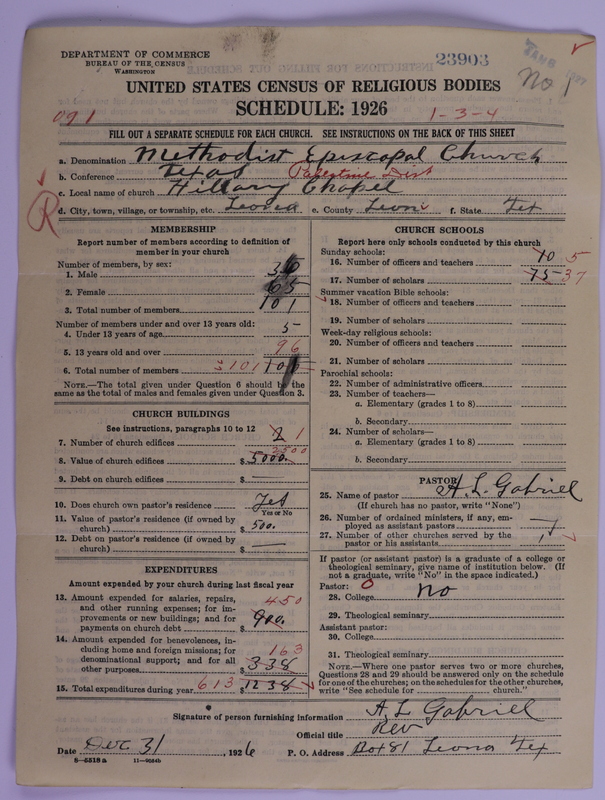 DEPARTMENT OF COMMERCE
BUREAU OF THE CENSUS
WASHINGTON
23903
No 1
UNITED STATES CENSUS OF RELIGIOUS BODIES
SCHEDULE: 1926
091
1-3-4
FILL OUT A SEPARATE SCHEDULE FOR EACH CHURCH. SEE INSTRUCTIONS ON THE BACK OF THIS SHEET
a. Denomination Methodist Episcopal Church
b. Conference Texas Palestine Dist
c. Local name of church Hillary Chapel
R
d. City, town, village, or township, etc. Leona e. County Leon f. State Tex
MEMBERSHIP
Report number of members according to definition of
member in your church
Number of members, by sex:
1. Male 36
2. Female 65
3. Total number of members 101
Number of members under and over 13 years old:
4. Under 13 years of age 5
5. 13 years old and over 96
6. Total number of members 3101
NOTE.—The total given under Question 6 should be the
same as the total of males and females given under Question 3.
CHURCH BUILDINGS
See instructions, paragraphs 10 to 12
7. Number of church edifices 2 1
2500
8. Value of church edifices $ 5000.
9. Debt on church edifices $ —
10. Does church own pastor's residence Yes
Yes or No
11. Value of pastor's residence (if owned by
church) $ 500.
12. Debt on pastor's residence (if owned by
church) $ —
EXPENDITURES
Amount expended by your church during last fiscal year
13. Amount expended for salaries, repairs,
and other running expenses; for im-
provements or new buildings; and for
payments on church debt $ 900. 450
14. Amount expended for benevolences, in-
cluding home and foreign missions; for
denominational support; and for all
other purposes $ 338 163
15. Total expenditures during year 613 $ 1238
CHURCH SCHOOLS
Report here only schools conducted by this church
Sunday schools:
16. Number of officers and teachers 10 5
17. Number of scholars 75 37
Summer vacation Bible schools:
18. Number of officers and teachers
19. Number of scholars
Week-day religious schools:
20. Number of officers and teachers
21. Number of scholars
Parochial schools:
22. Number of administrative officers
23. Number of teachers—
a. Elementary (grades 1 to 8)
b. Secondary
24. Number of scholars—
a. Elementary (grades 1 to 8)
b. Secondary
PASTOR
25. Name of pastor A. L. Gabriel
(If church has no pastor, write "None")
26. Number of ordained ministers, if any, em-
ployed as assistant pastors
27. Number of other churches served by the
pastor or his assistants
If pastor (or assistant pastor) is a graduate of a college or
theological seminary, give name of institution below. (If
not a graduate, write "No" in the space indicated.)
Pastor: 0
28. College No
29. Theological seminary
Assistant pastor:
30. College
31. Theological seminary
NOTE.—Where one pastor serves two or more churches,
Questions 28 and 29 should be answered only on the schedule
for one of the churches; on the schedules for the other churches,
write "See schedule for church."
Signature of person furnishing information A. L. Gabriel
Official title Rev
Date Dec 31, 1926
P. O. Address Box 81 Leona Tex
8—5518a 11—9684b